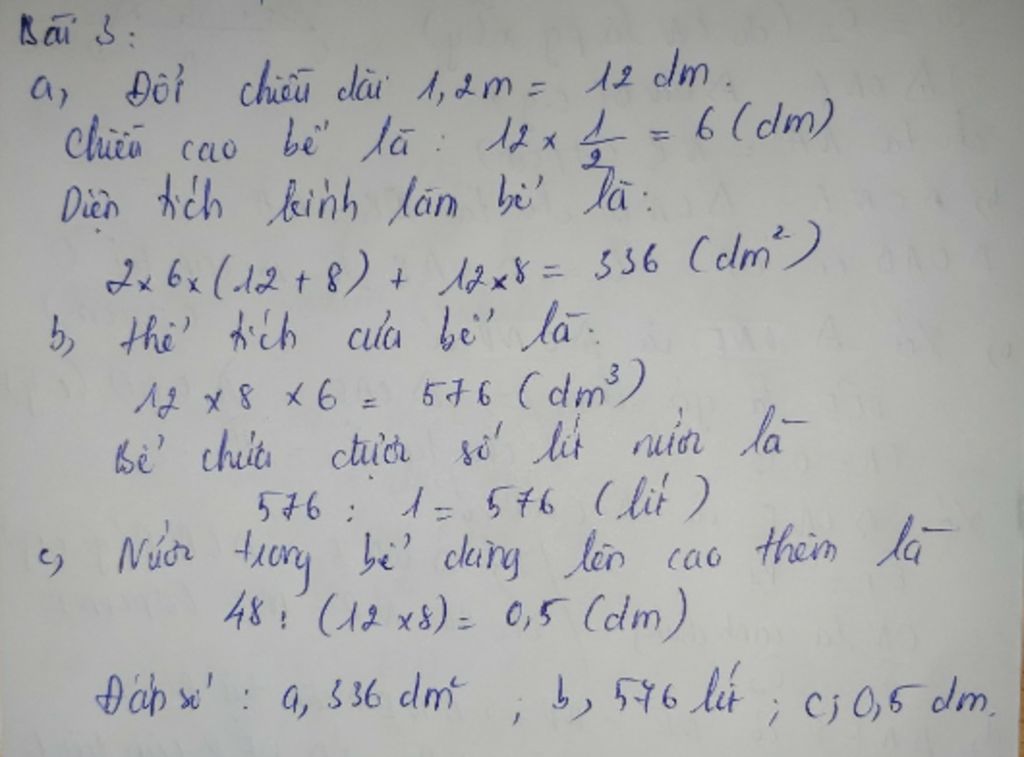 Bài 3:
a, Đổi chiều dài 1,2m = 12 dm.
Chiều cao bể là: 12 x 1/2 = 6 (dm)
Diện tích kính làm bể là:
2 x 6 x (12 + 8) + 12 x 8 = 336 (dm²)
b, thể tích của bể là:
12 x 8 x 6 = 576 (dm³)
Bể chứa được số lít nước là
576 : 1 = 576 (lít)
c, Nước trong bể dâng lên cao thêm là
48 : (12 x 8) = 0,5 (dm)
Đáp số: a, 336 dm² ; b, 576 lít ; c; 0,5 dm.